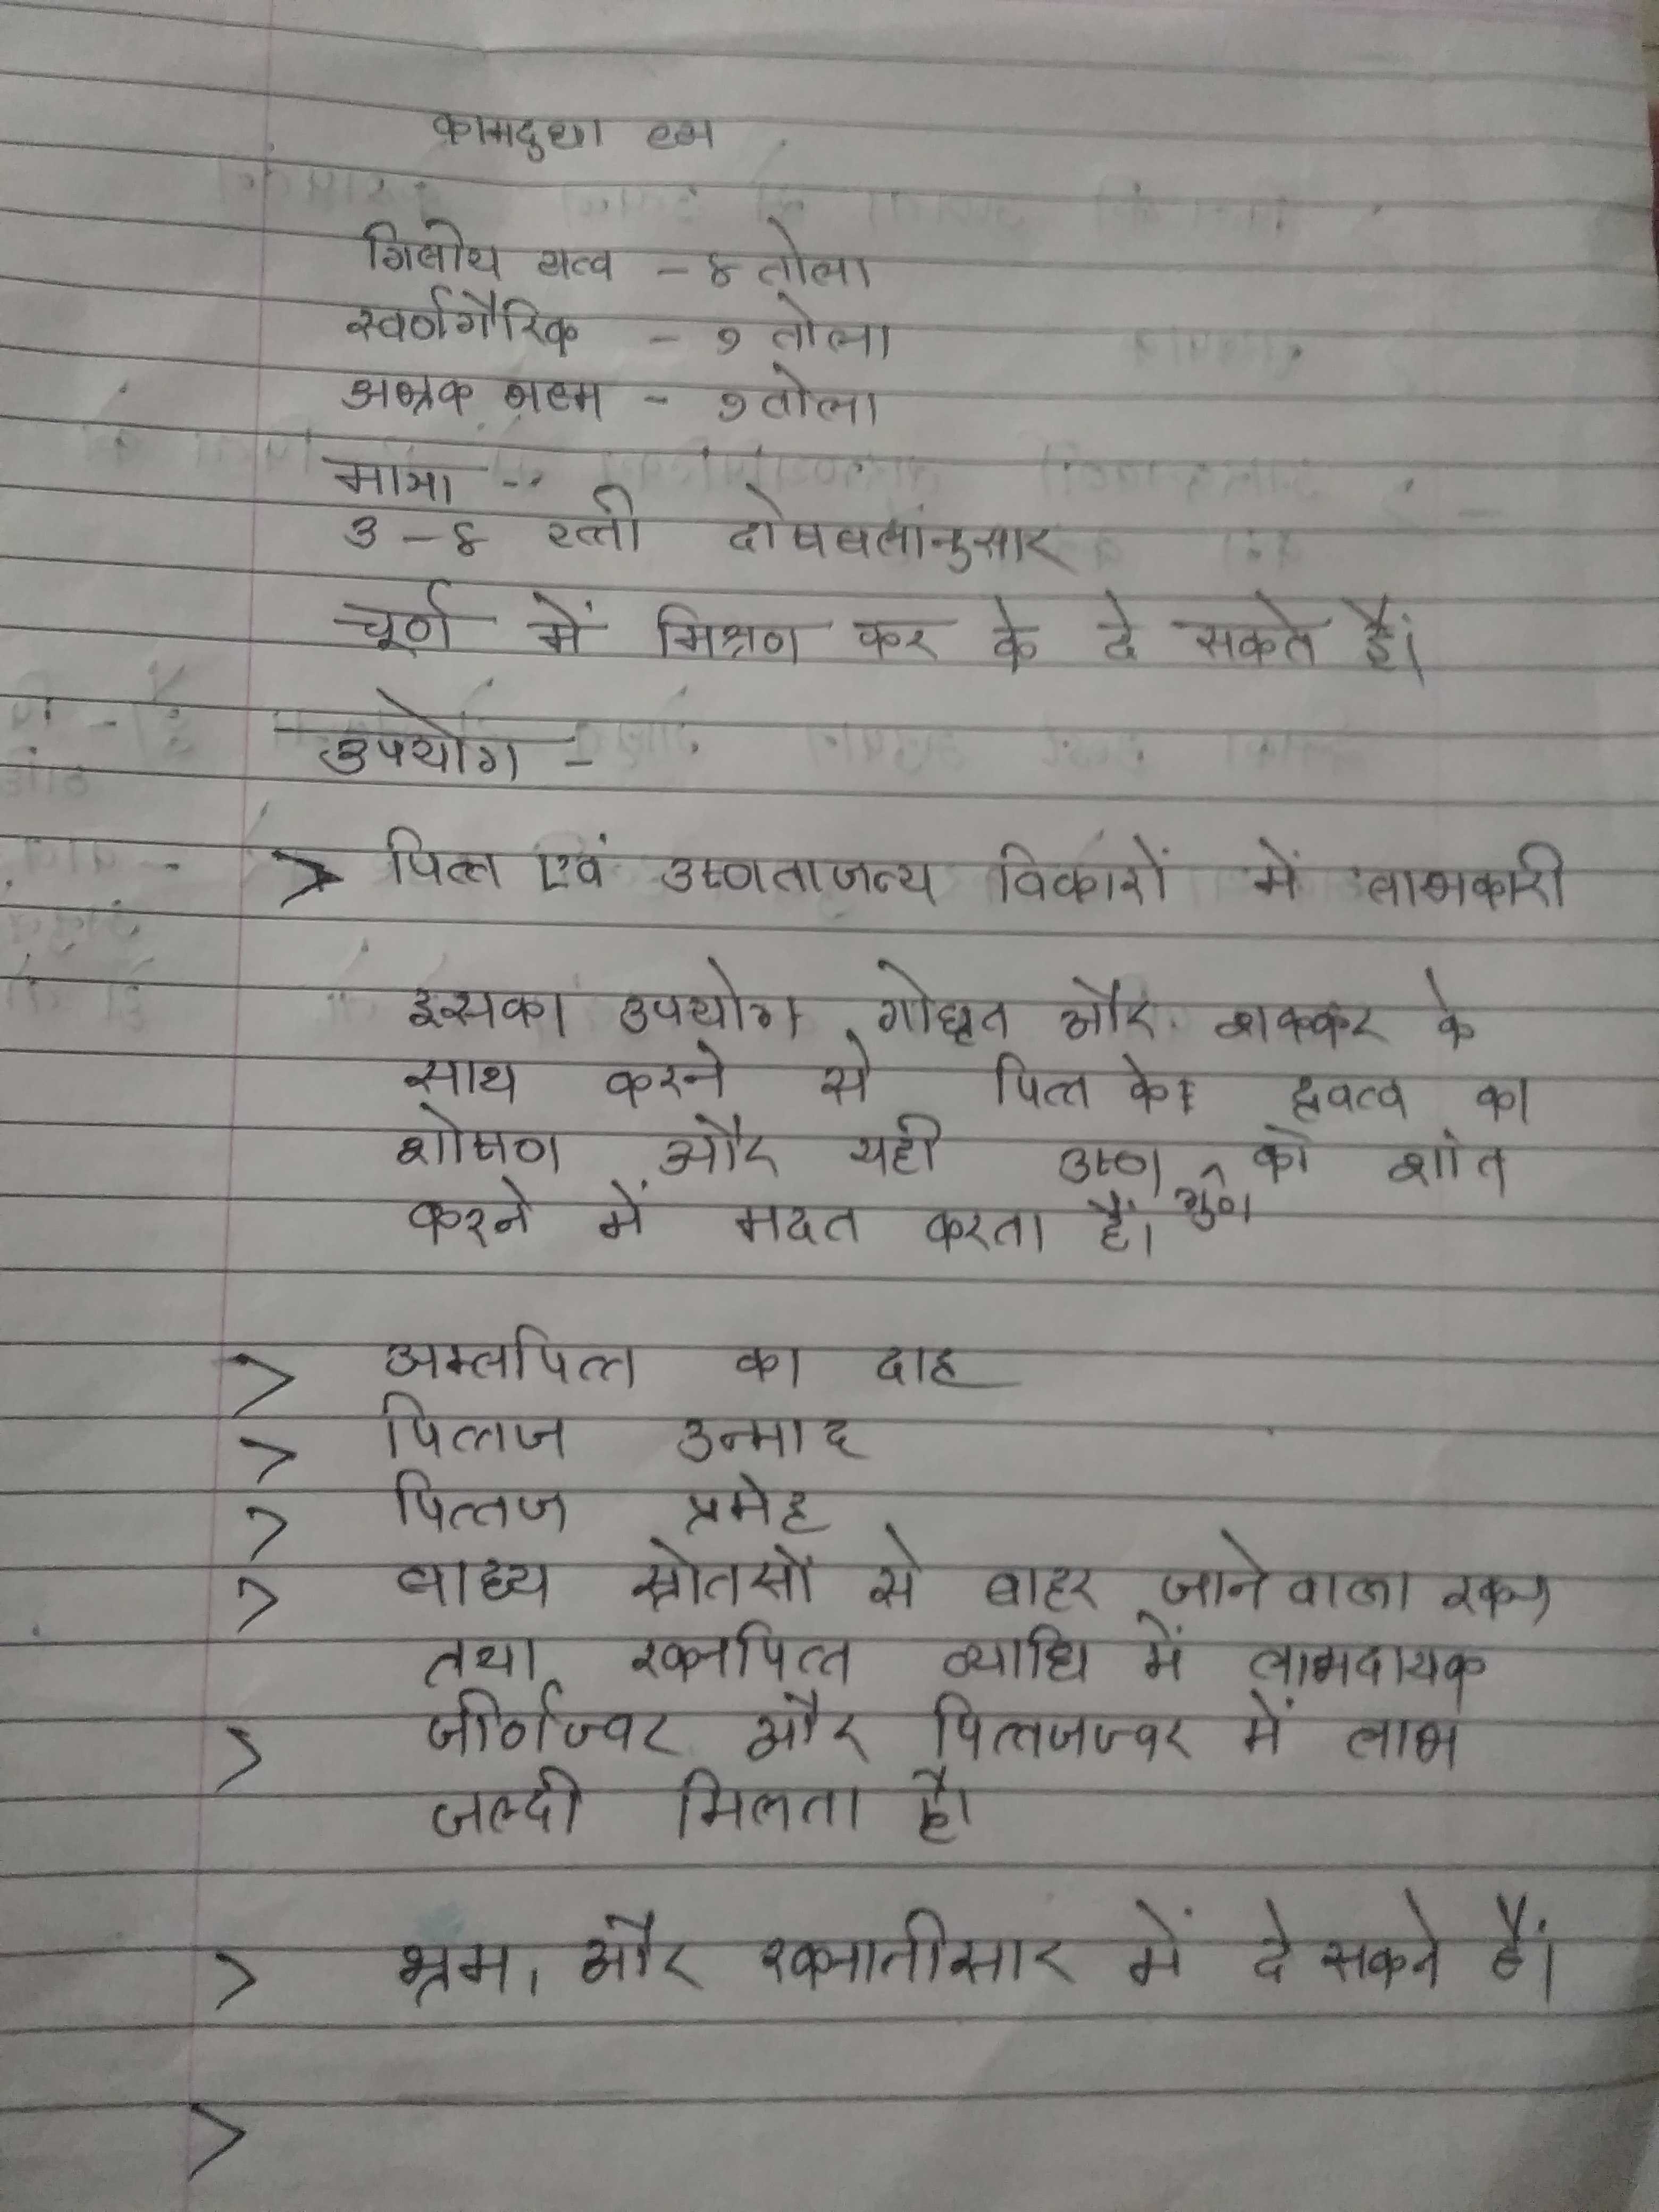 कामदुधा रस
गिलोय सत्व - ४ तोला
स्वर्णगैरिक - १ तोला
अभ्रक भस्म - १ तोला
मात्रा --
३-४ रत्ती दोषबलांनुसार
चूर्ण में मिश्रण कर के दे सकते हैं।
उपयोग -
> पित्त एवं उष्णताजन्य विकारों में लाभकारी
इसका उपयोग गोघृत और शक्कर के
साथ करने से पित्त के द्रवत्व का
शोषण और यही उष्ण गुण को शांत
करने में मदत करता हैं।
> अम्लपित्त का दाह
> पित्तज उन्माद
> पित्तज प्रमेह
> बाह्य स्रोतसों से बाहर जानेवाला रक्त
तथा रक्तपित्त व्याधि में लाभदायक
> जीर्णज्वर और पित्तजज्वर में लाभ
जल्दी मिलता है।
> भ्रम, और रक्तातीसार में दे सकते हैं।
>